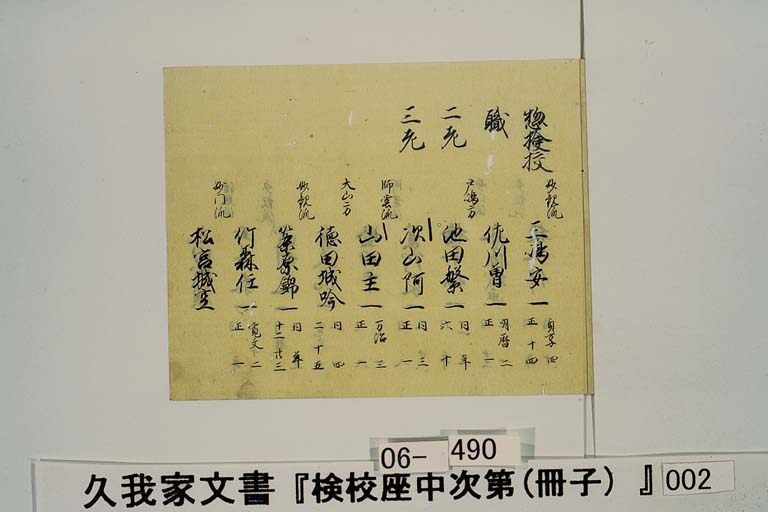 惣検校
妙観流
三嶋安一
貞享四
正十四
職
佐川曽一
明暦二
正一
二老
戸嶋方
池田繁一
同年
六十
三老
次山阿一
同三
正一
師堂流
山田主一
万治三
正一
大山方
徳田城吟
同四
二十五
妙観流
笨原錦一
同年
十二廿三
妙門流
竹森任一
寛文二
正一
松宮城立
06-490
久我家文書『検校座中次第(冊子)』002